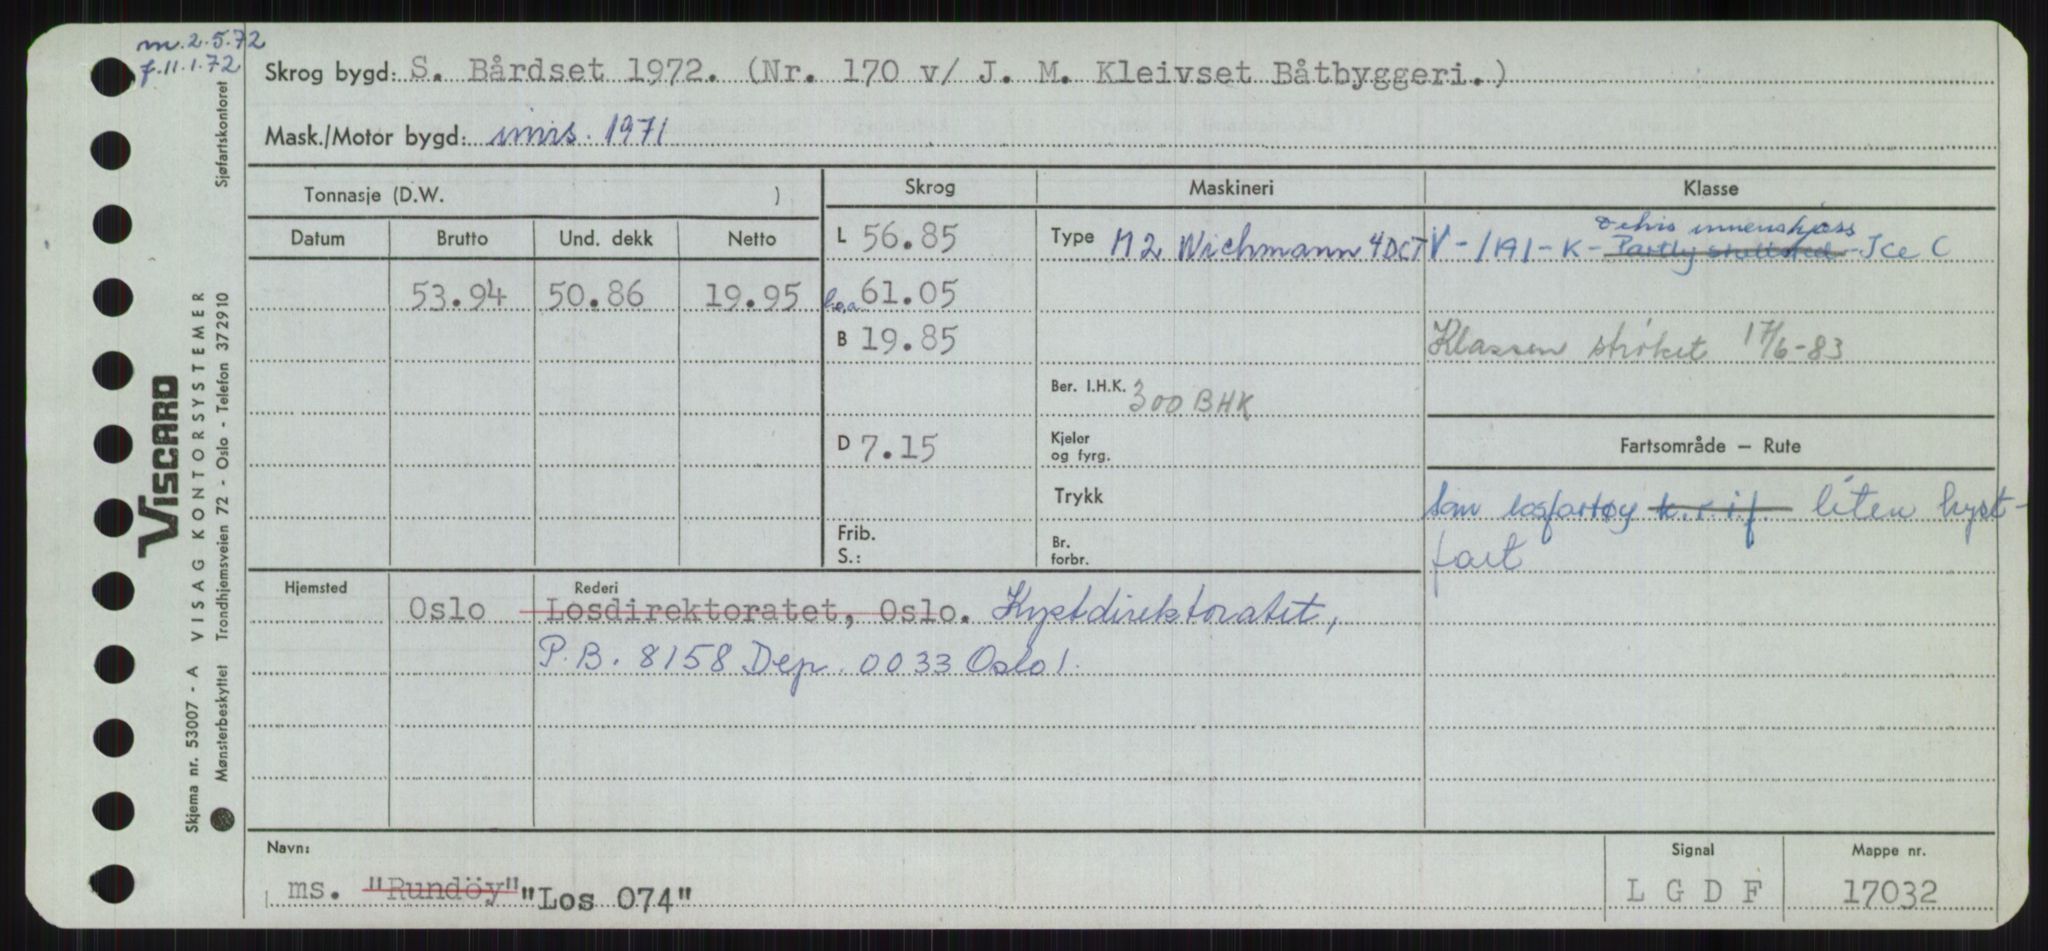 m. 2.5.72
f. 11.1.72
Skrog bygd: S. Bårdset 1972. (Nr. 170 v/ J. M. Kleivset Båtbyggeri.)
Mask./Motor bygd: 1971
Tonnasje (D.W. ) Skrog Maskineri Klasse
Datum Brutto Und. dekk Netto L 56.85 Type M2 Wichmann 4DCT V-1A1-K-Partly shellsted-Ice C
innenskjærs
53.94 50.86 19.95 l.o.a 61.05
B 19.85 Klassen strøket 17/6-83
Ber. I.H.K. 300 BHK
D 7.15 Kjeler og fyrg. Fartsområde — Rute
Trykk Som losfartøy k.r.i.f. liten kyst-
Frib. S.: Br. forbr. fart
Hjemsted Rederi
Oslo Losdirektoratet, Oslo. Kystdirektoratet,
P.B. 8158 Dep. 0033 Oslo 1.
Navn: Signal Mappe nr.
ms. "Rundöy" "Los 074" L G D F 17032
Sjøfartskontoret
VISCARD
VISAG KONTORSYSTEMER
Trondhjemsveien 72 - Oslo - Telefon 372910
Skjema nr. 53007 - A
Mønsterbeskyttet